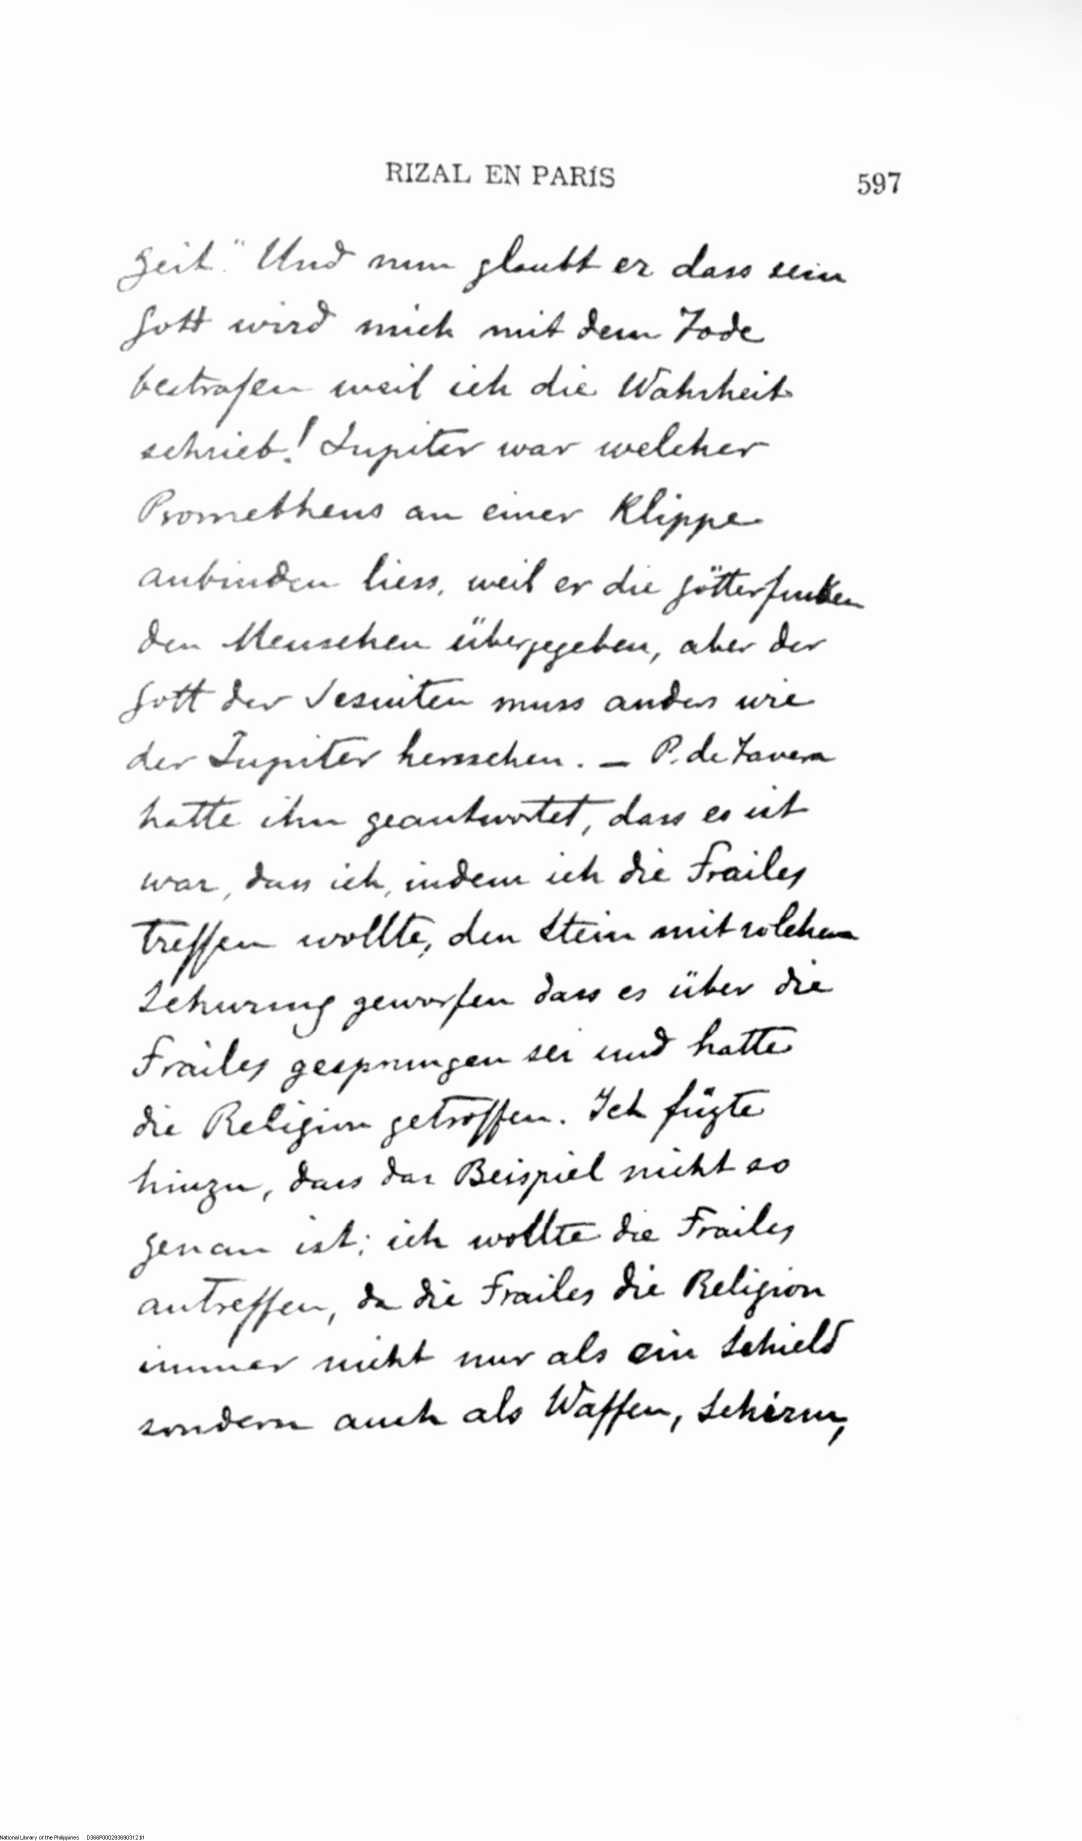 RIZAL EN PARÍS 597
geit." Und nun glaubt er dass sein
Gott wird mich mit dem Tode
bestrafen weil ich die Wahrheit
schrieb! Jupiter war welcher
Prometheus an einer Klippe
anbinden liess, weil er die Götterfunken
den Menschen übergegeben, aber der
Gott der Jesuiten muss anders wie
der Jupiter herrschen. — P. de Tavera
hatte ihm geantwortet, dass es ist
war, dass ich, indem ich die Frailes
treffen wollte, den Stein mit solchem
Schwung geworfen dass es über die
Frailes gesprungen sei und hatte
die Religion getroffen. Ich fügte
hinzu, dass das Beispiel nicht so
genau ist; ich wollte die Frailes
antreffen, da die Frailes die Religion
immer nicht nur als ein Schield
sondern auch als Waffen, Schirm,
National Library of the Philippines